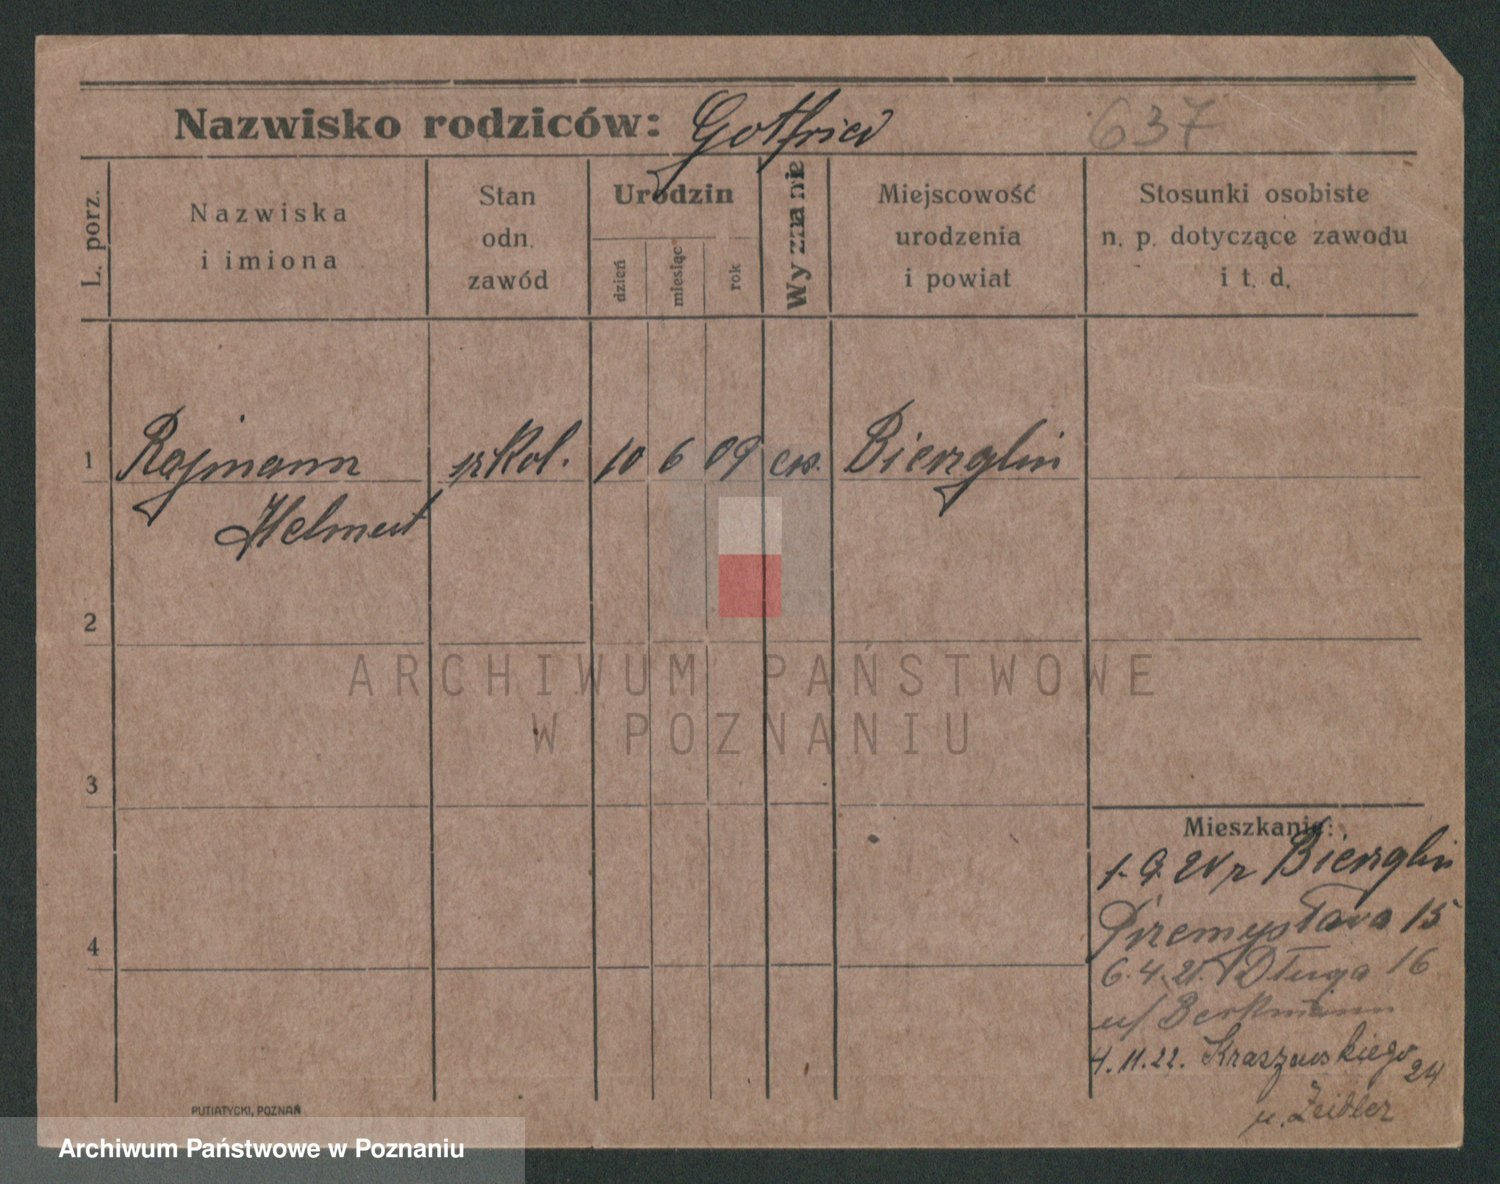 Nazwisko rodziców: Gotfried 637
L. porz.
Nazwiska
i imiona
Stan
odn.
zawód
Urodzin
dzień
miesiąc
rok
Wyznanie
Miejscowość
urodzenia
i powiat
Stosunki osobiste
n. p. dotyczące zawodu
i t. d.
1 Rajmann szkol. 10 6 09 ew. Bierzglin
Helmut
2
3
4
ARCHIWUM PAŃSTWOWE
W POZNANIU
Mieszkanie:
z Bierzglin
Przemysława 15
6.4.21. Długa 16
u/ Berkmann
4.11.22. Kraszewskiego 24
u. Zeidler
PUTIATYCKI, POZNAŃ
Archiwum Państwowe w Poznaniu